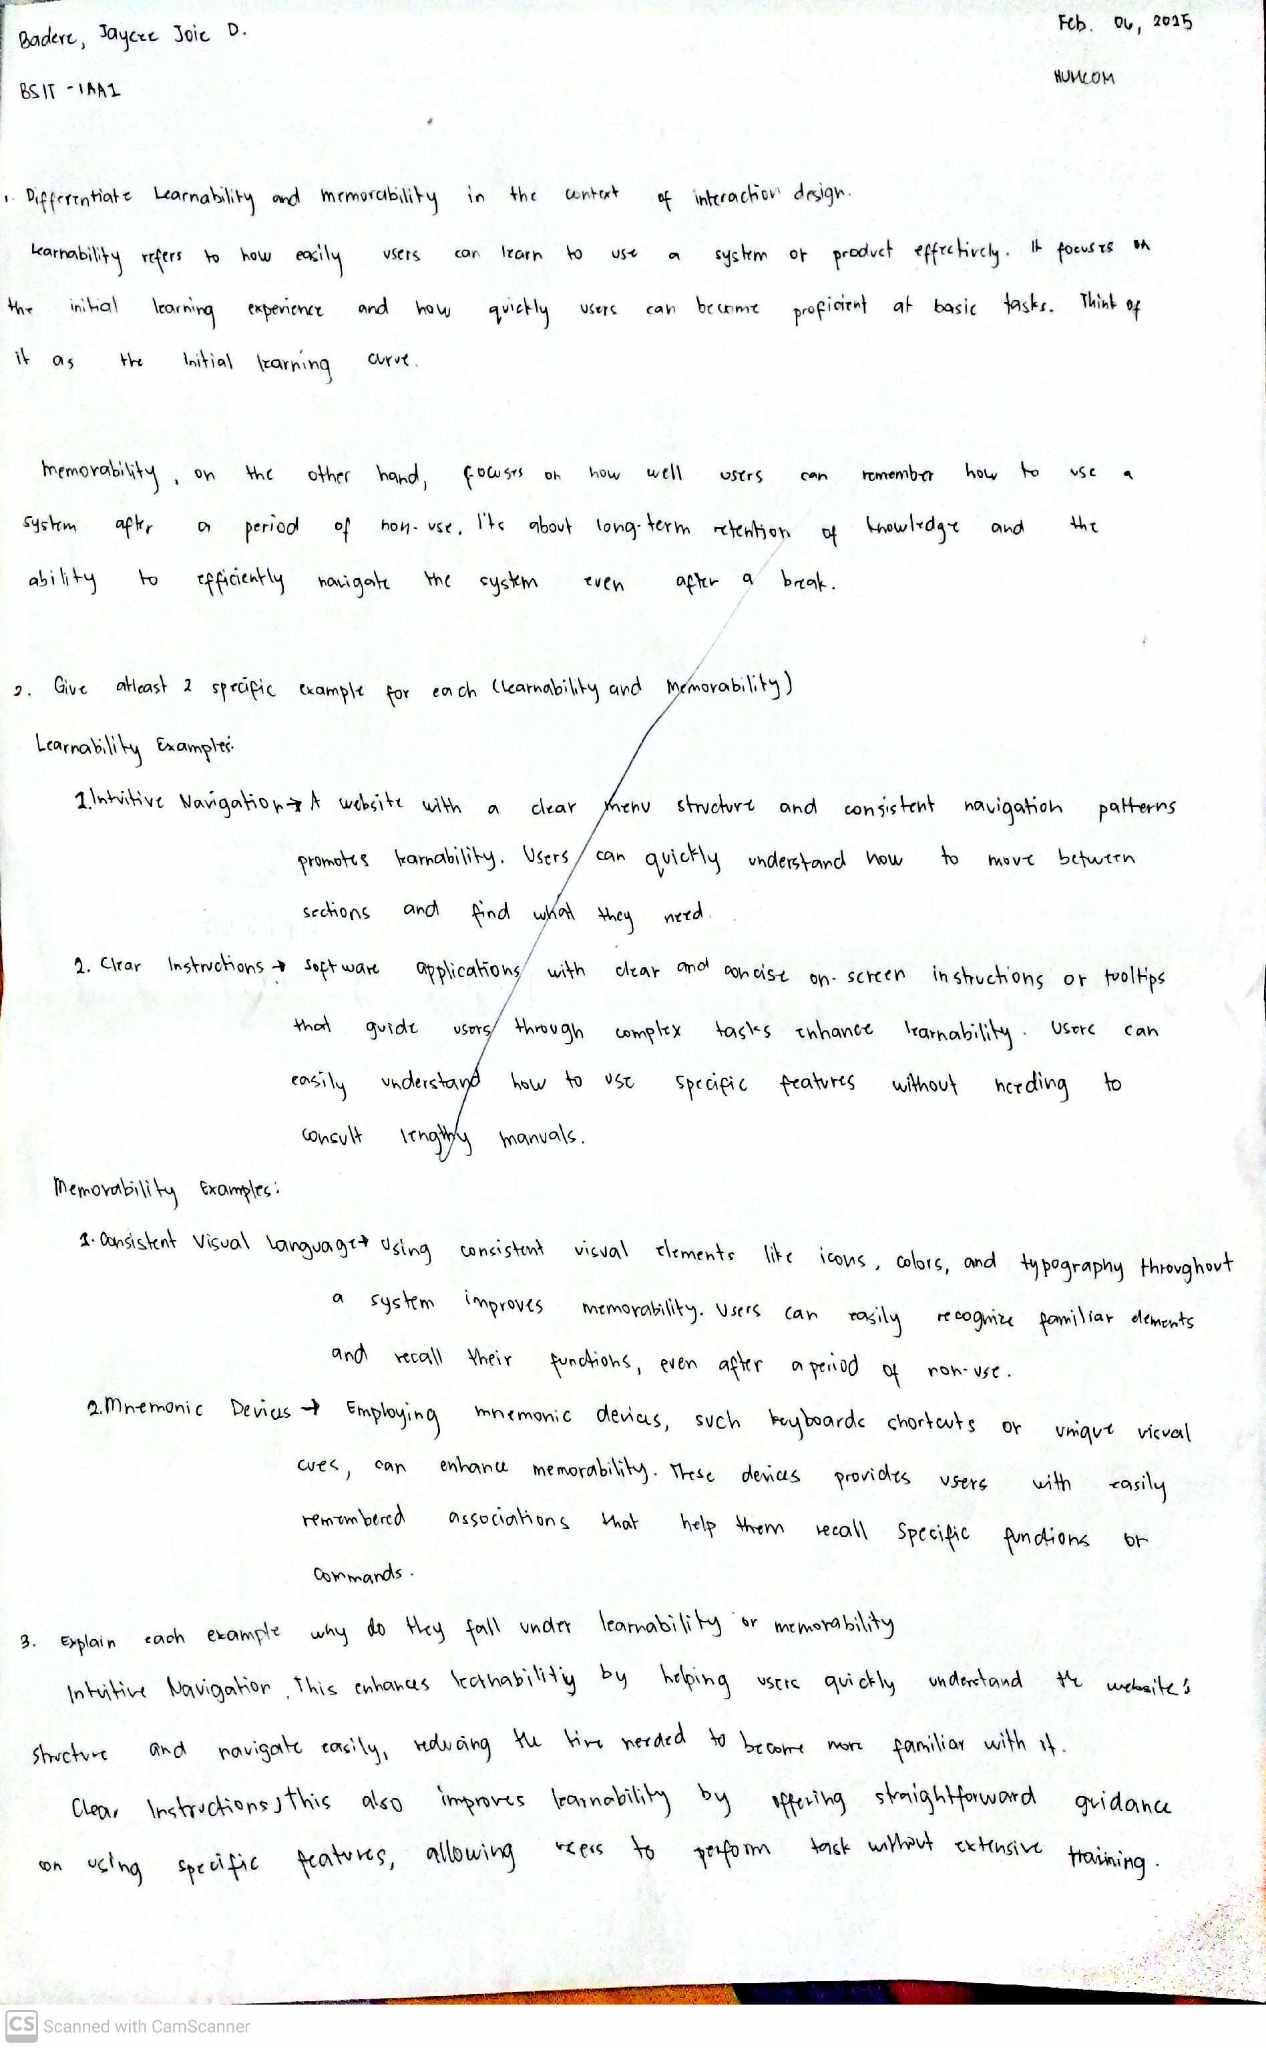 Badere, Jaycee Joie D.
Feb. 06, 2025
BSIT - 1AA1
HUMCOM
1. Differentiate Learnability and memorability in the context of interaction design.
Learnability refers to how easily users can learn to use a system or product effectively. It focuses on
the initial learning experience and how quickly users can become proficient at basic tasks. Think of
it as the initial learning curve.
Memorability, on the other hand, focuses on how well users can remember how to use a
system after a period of non-use. It's about long-term retention of knowledge and the
ability to efficiently navigate the system even after a break.
2. Give atleast 2 specific example for each (Learnability and Memorability)
Learnability Examples:
1. Intuitive Navigation → A website with a clear menu structure and consistent navigation patterns
promotes learnability. Users can quickly understand how to move between
sections and find what they need.
2. Clear Instructions → Software applications with clear and concise on-screen instructions or tooltips
that guide users through complex tasks enhance learnability. Users can
easily understand how to use specific features without needing to
consult lengthy manuals.
Memorability Examples:
1. Consistent Visual Language → Using consistent visual elements like icons, colors, and typography throughout
a system improves memorability. Users can easily recognize familiar elements
and recall their functions, even after a period of non-use.
2. Mnemonic Devices → Employing mnemonic devices, such keyboards shortcuts or unique visual
cues, can enhance memorability. These devices provides users with easily
remembered associations that help them recall specific functions or
commands.
3. Explain each example why do they fall under learnability or memorability
Intuitive Navigation, This enhances learnability by helping users quickly understand the website's
structure and navigate easily, reducing the time needed to become more familiar with it.
Clear Instructions, this also improves learnability by offering straightforward guidance
on using specific features, allowing users to perform task without extensive training.
CS Scanned with CamScanner